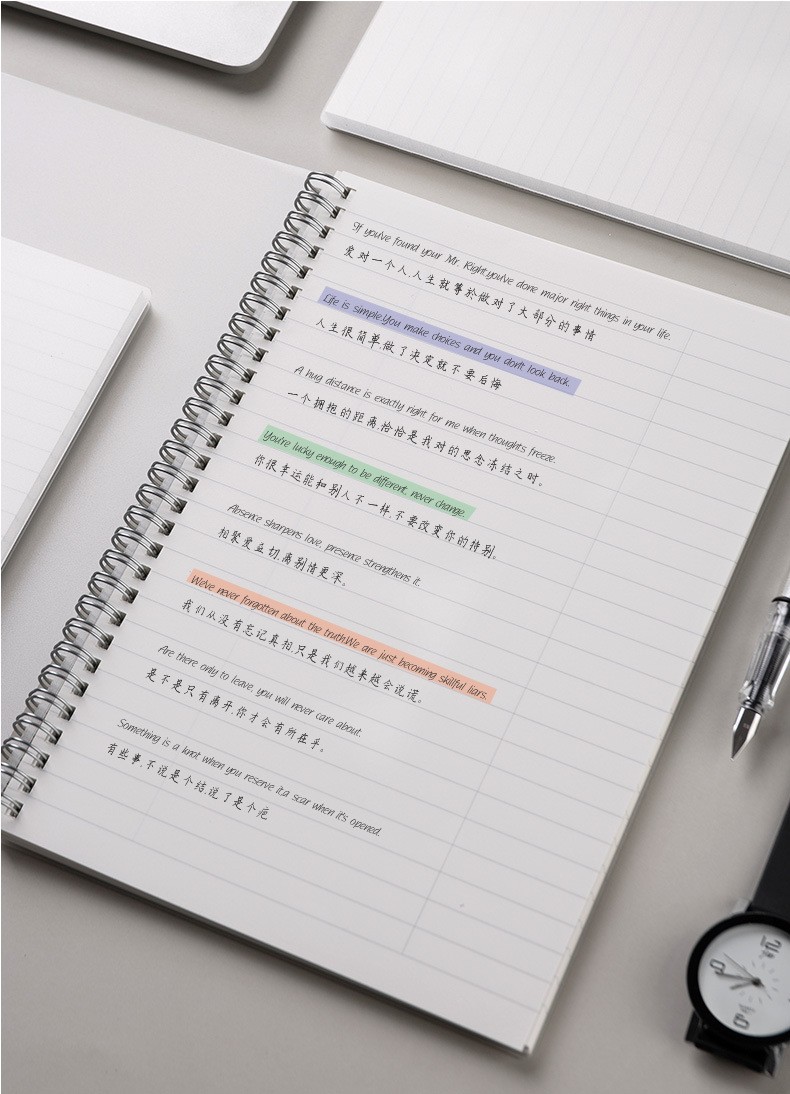 If you've found your Mr. Right,you've done major right things in your life.
爱对一个人,人生就等於做对了大部分的事情
Life is simple.You make choices and you don't look back.
人生很简单,做了决定就不要后悔
A hug distance is exactly right for me when thoughts freeze.
一个拥抱的距离,恰恰是我对的思念冻结之时。
You're lucky enough to be different, never change.
你很幸运能和别人不一样,不要改变你的特别。
Absence sharpens love, presence strengthens it.
相聚爱益切,离别情更深。
We've never forgotten about the truth.We are just becoming skillful liars.
我们从没有忘记真相,只是我们越来越会说谎。
Are there only to leave, you will never care about.
是不是只有离开,你才会有所在乎。
Something is a knot when you reserve it,a scar when it's opened.
有些事,不说是个结,说了是个疤
12
9
6